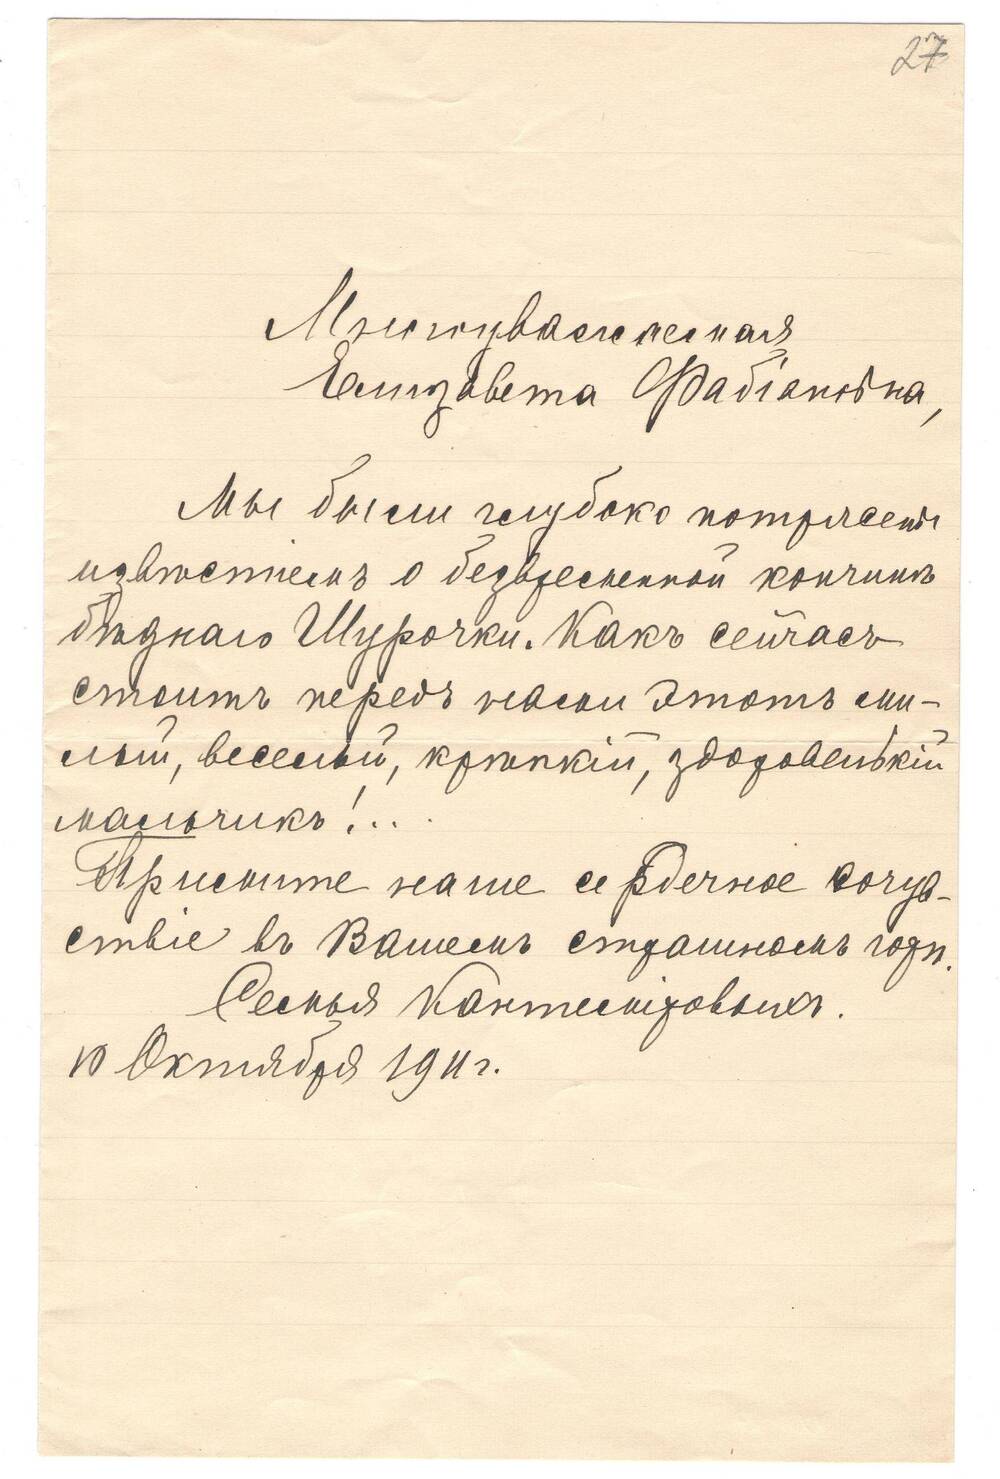 27
Многоуважаемая
Елизавета Фабіановна,
Мы были глубоко потрясены
извѣстіемъ о безвременной кончинѣ
бѣднаго Шурочки. Какъ сейчасъ
стоитъ передъ нами этотъ ми-
лый, веселый, крѣпкій, здоровенькій
мальчикъ!...
Примите наше сердечное сочув-
ствіе въ Вашемъ страшномъ горѣ.
Семья Кантемировыхъ.
10 Октября 1911 г.